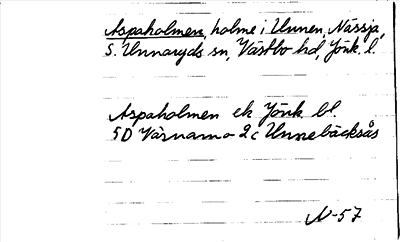 Aspaholmen, holme i Unnen, Nässja,
S. Unnaryds sn, Västbo hd, Jönk. l.
Aspaholmen ek Jönk. bl.
5D Värnamo 2c Unnebäcksås
N-57